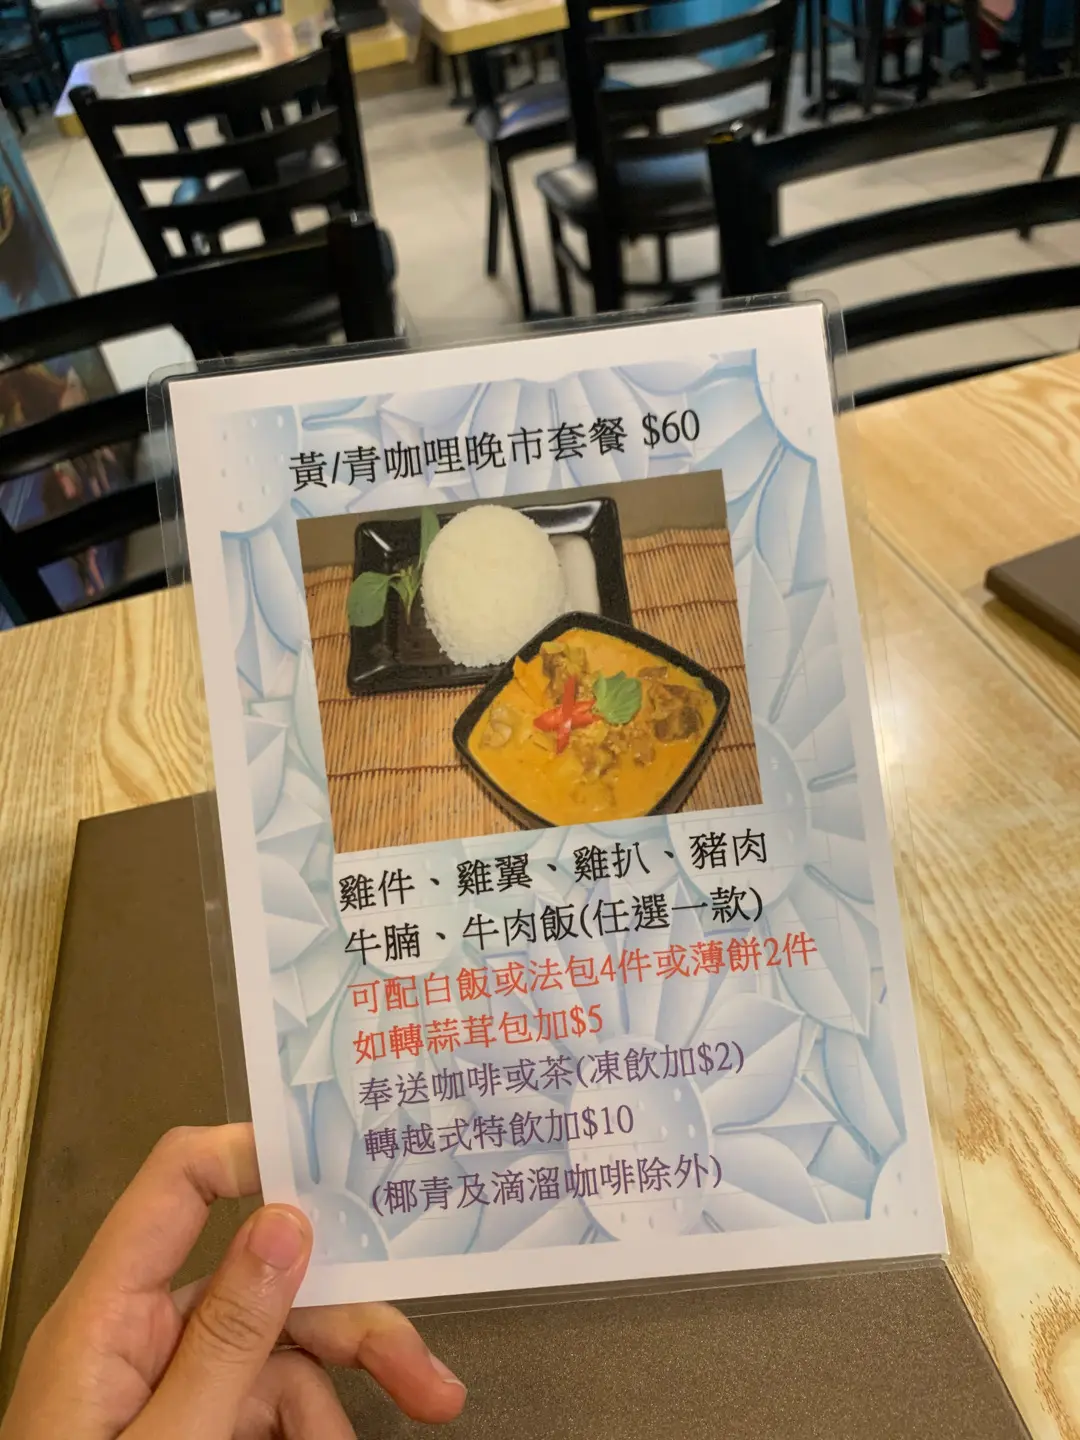 黃/青咖哩晚市套餐 $60
雞件、雞翼、雞扒、豬肉
牛腩、牛肉飯(任選一款)
可配白飯或法包4件或薄餅2件
如轉蒜茸包加$5
奉送咖啡或茶(凍飲加$2)
轉越式特飲加$10
(椰青及滴溜咖啡除外)